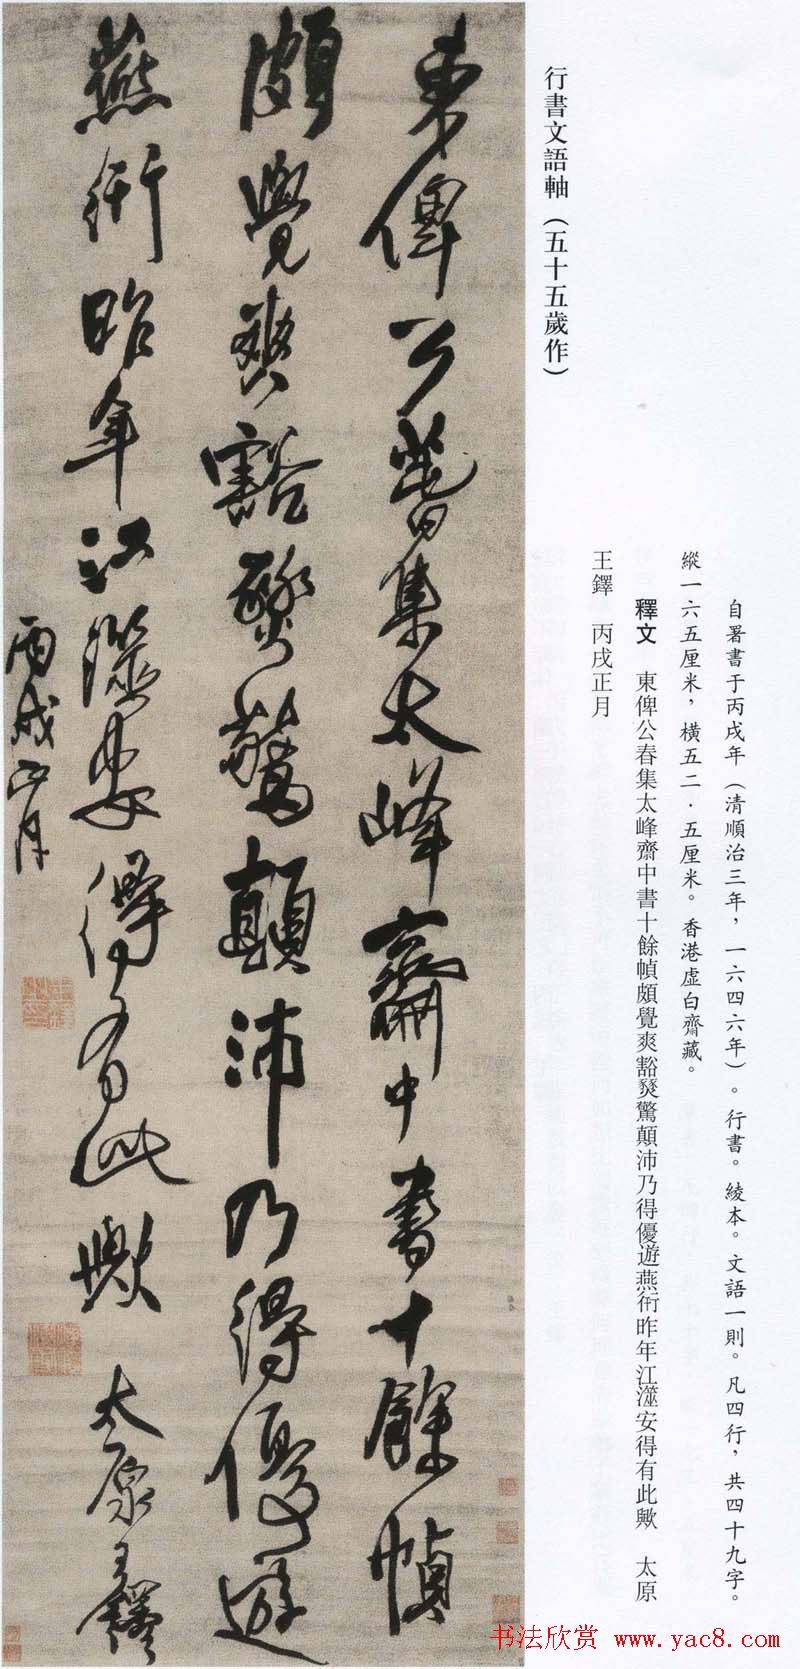 行書文語軸（五十五歲作）
自署書于丙戌年（清順治三年，一六四六年）。行書。綾本。文語一則。凡四行，共四十九字。
縱一六五厘米，橫五二．五厘米。香港虛白齋藏。
釋文　東俾公春集太峰齋中書十餘幀頗覺爽豁燹驚顛沛乃得優遊燕衎昨年江澨安得有此歟　太原
王鐸　丙戌正月
東俾公暮集太峰齋中書十餘幀
頗覺爽豁燹驚顛沛乃得優遊
燕衎昨年江澨安得有此歟　太原王鐸
丙戌正月
书法欣赏 www.yac8.com